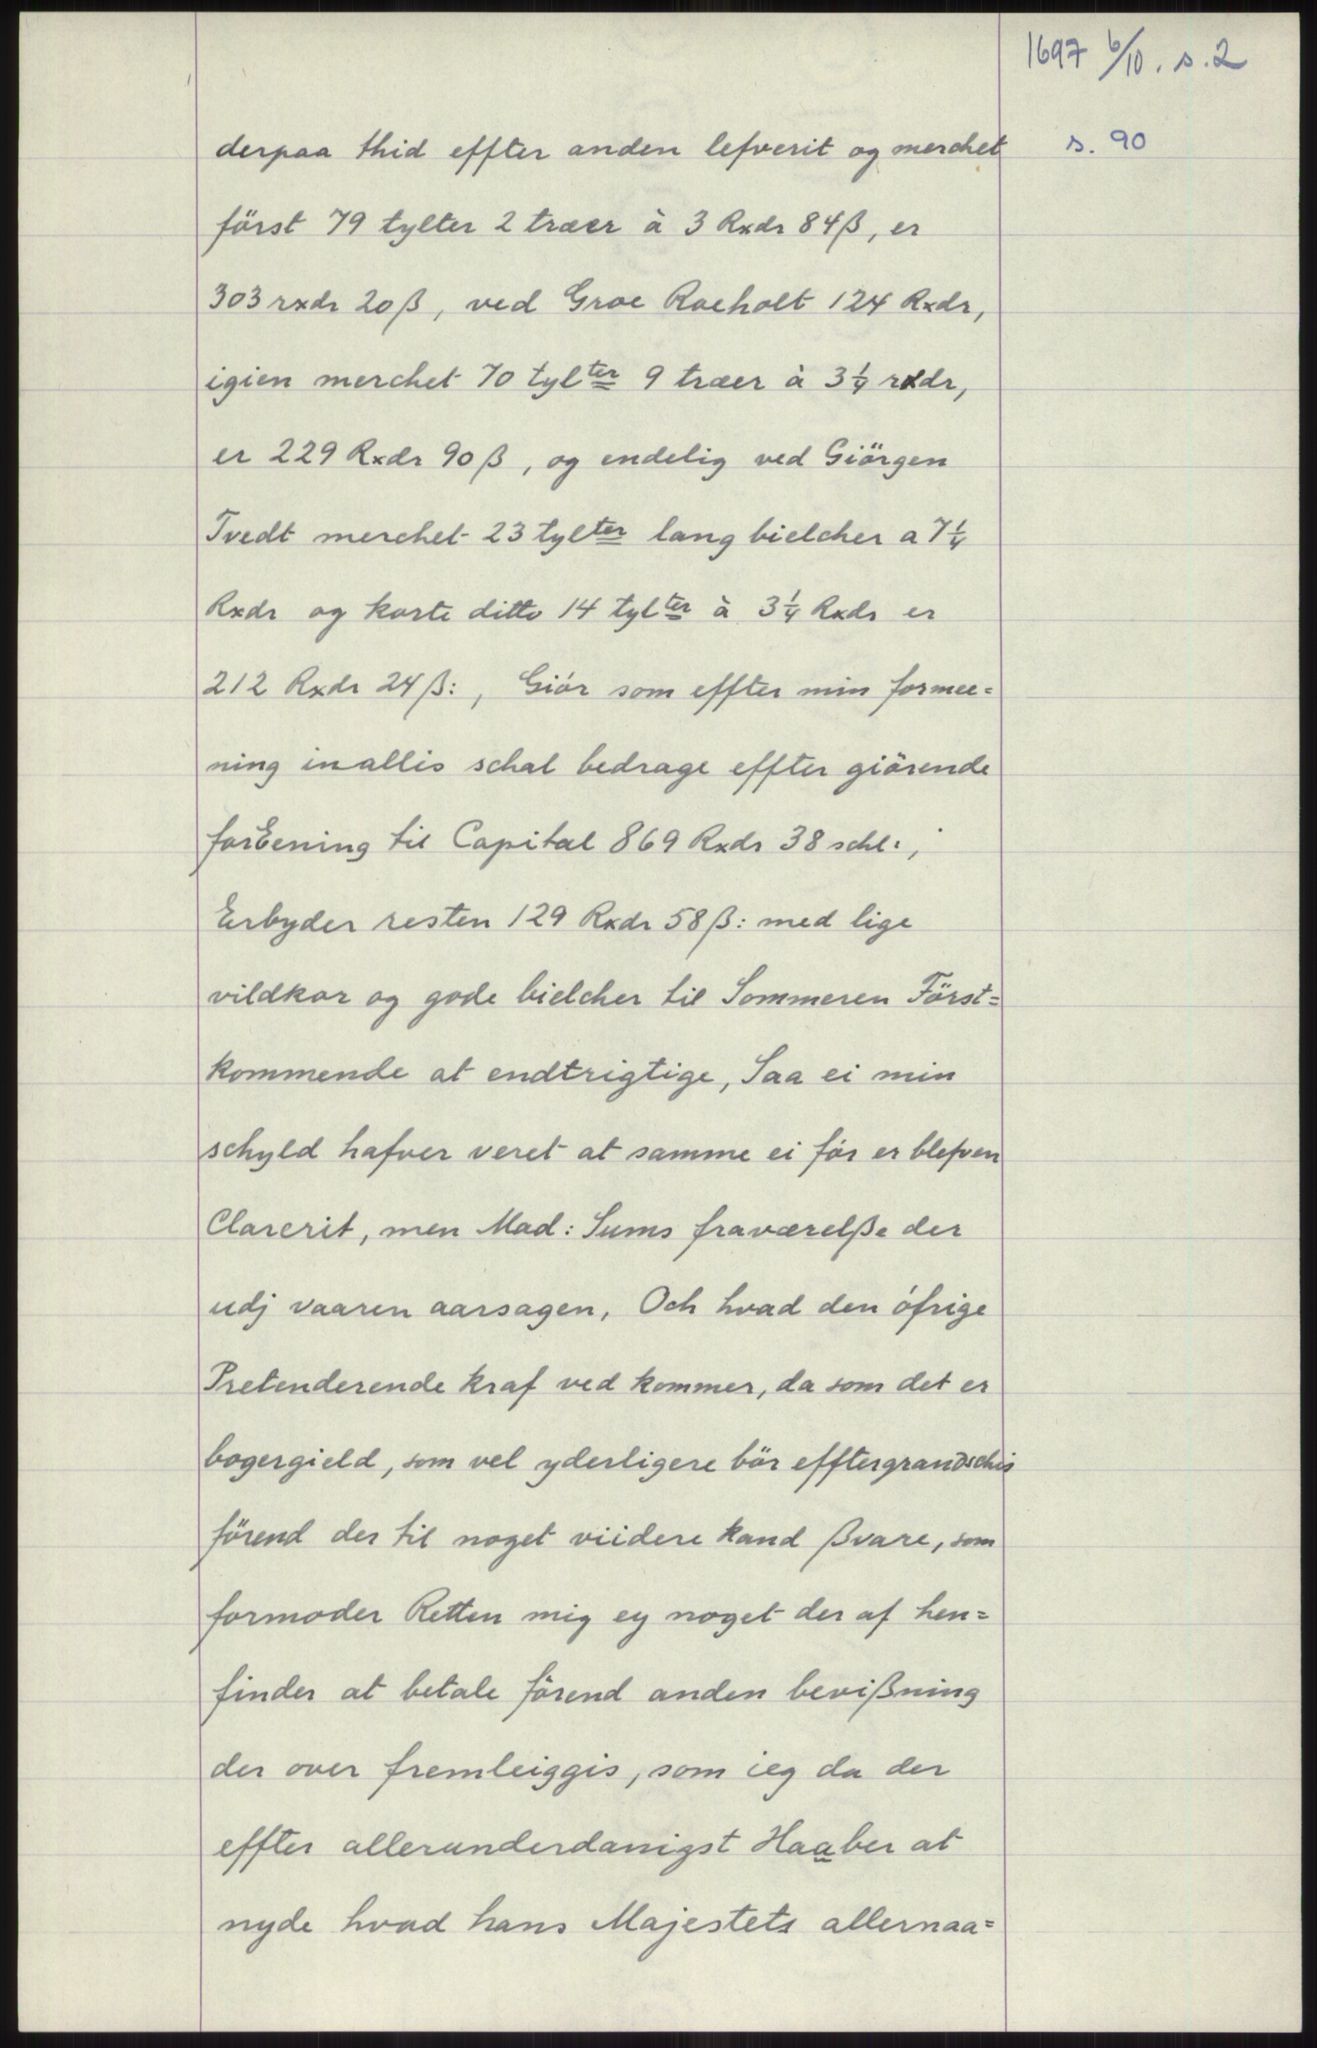 1697 6/10. s. 2
s. 90
derpaa thid effter anden lefverit og merchet
först 79 tylter 2 træer à 3 Rxdr 84 β, er
303 rxdr 20 β, ved Groe Roeholt 124 Rxdr,
igien merchet 70 tylter 9 træer à 3 1/4 rxdr,
er 229 Rxdr 90 β, og endelig ved Giörgen
Tvedt merchet 23 tylter lang bielcher a 7 1/4
Rxdr og korte ditto 14 tylter à 3 1/4 Rxdr er
212 Rxdr 24 β:, Giör som effter min formee=
ning inallis schal bedrage effter giörende
forEening til Capital 869 Rxdr 38 schl:,
Erbyder resten 129 Rxdr 58 β: med lige
vildkor og gode bielcher til Sommeren Först=
kommende at endtrigtige, Saa ei min
schyld hafver veret at samme ei för er blefven
Clarerit, men Mad: Sums fraværelβe der
udj vaaren aarsagen, Och hvad den öfrige
Pretenderende kraf ved kommer, da som det er
bogergield, som vel yderligere bör efftergrandschis
förend der til noget viidere kand βvare, som
formoder Retten mig ey noget der af hen=
finder at betale förend anden beviβning
der over fremleiggis, som ieg da der
effter allerunderdanigst Haaber at
nyde hvad hans Majestets allernaa=